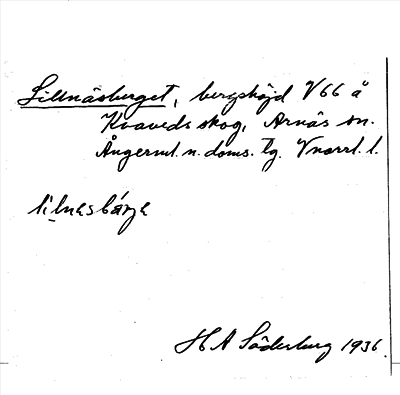 Lillnäsberget, bergshöjd V 66 å
Kvaveds skog, Arnäs sn.
Ångerml. n. doms. tg. Vnorrl. l.
lilnasbärje
H A Söderberg 1936.